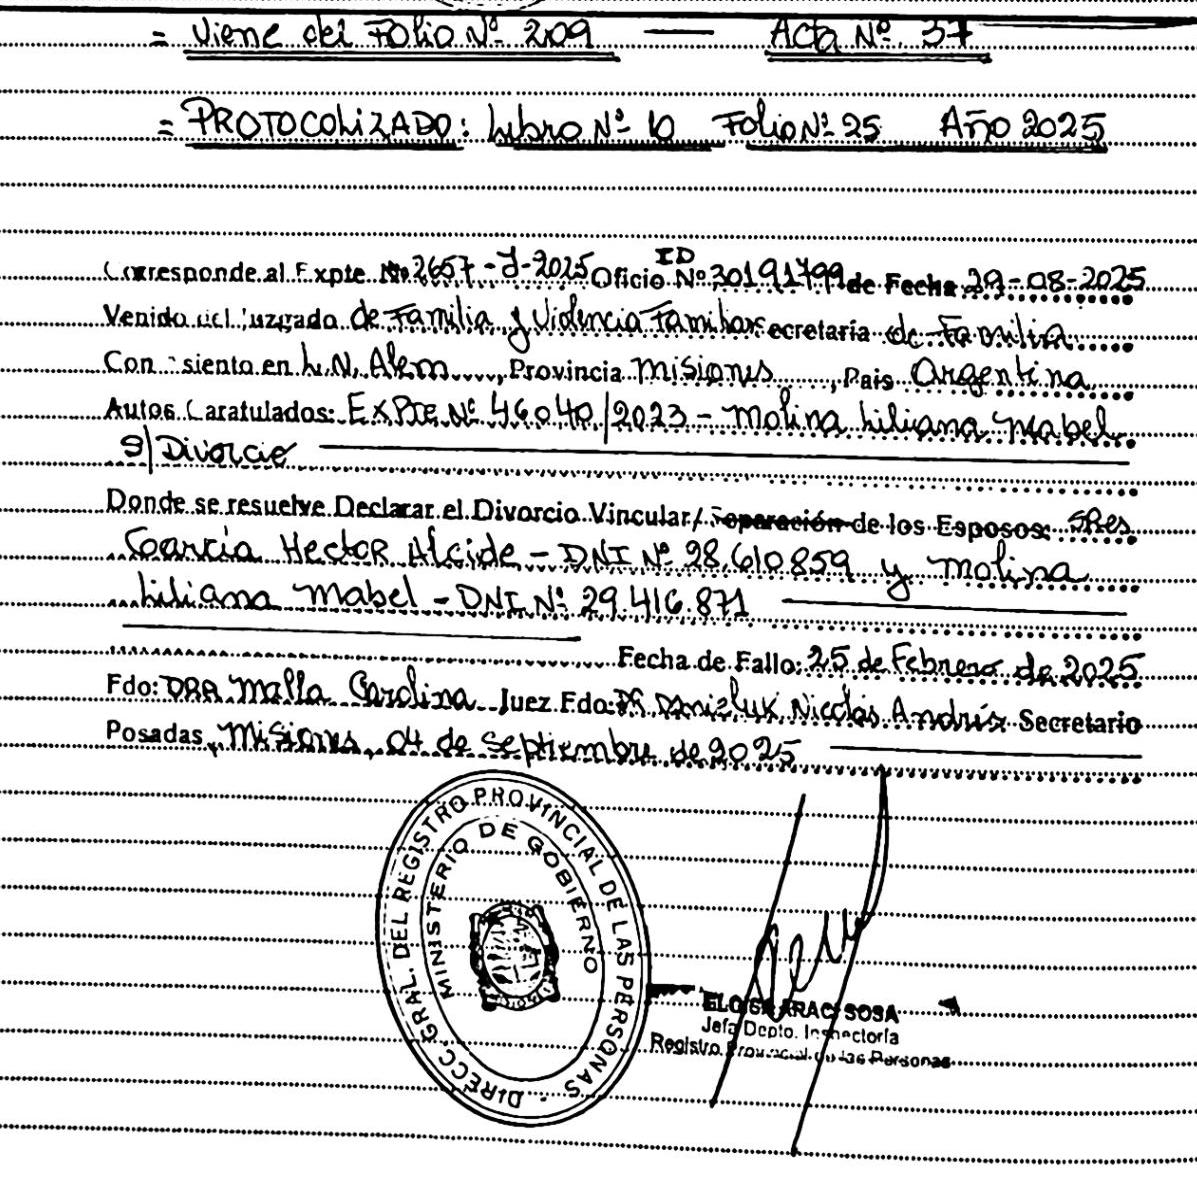 = Viene del Folio Nº 209 — Acta Nº 37
= PROTOCOLIZADO: Libro Nº 10 Folio Nº 25 Año 2025
Corresponde al Expte Nº 2657-J-2025 Oficio ID Nº 30191799 de Fecha 29-08-2025
Venido del Juzgado de Familia y Violencia Familiar Secretaría de Familia
Con asiento en L.N. Alem, Provincia Misiones, País Argentina
Autos Caratulados: EXPTE Nº 46040/2023 - Molina Liliana Mabel
S/Divorcio
Donde se resuelve Declarar el Divorcio Vincular/ Separación de los Esposos: SRes
García Hector Alcide - DNI Nº 28.610859 y Molina
Liliana Mabel - DNI Nº 29.416.871
Fecha de Fallo: 25 de Febrero de 2025
Fdo: DRA Malla Carolina Juez Fdo: Dr Nicolás Andrés Secretario
Posadas, Misiones, 04 de Septiembre de 2025
DIRECC. GRAL. DEL REGISTRO PROVINCIAL DE LAS PERSONAS
MINISTERIO DE GOBIERNO
SOSA
Jefa Depto. Inspectoría
Registro Provincial de las Personas